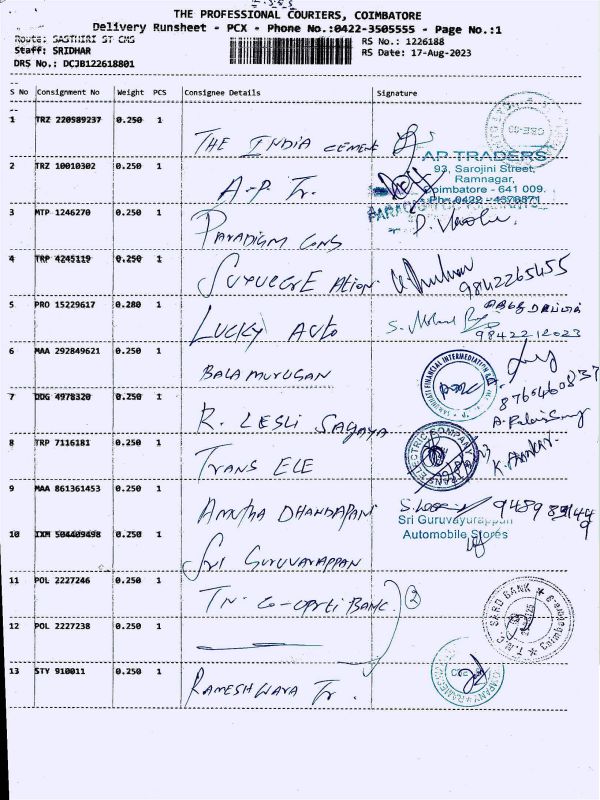 THE PROFESSIONAL COURIERS, COIMBATORE
Delivery Runsheet - PCX - Phone No.:0422-3505555 - Page No.:1
Route: SASTHIRI ST CMS
RS No.: 1226188
Staff: SRIDHAR
RS Date: 17-Aug-2023
DRS No.: DCJB122618801
S No Consignment No Weight PCS Consignee Details Signature
1 TRZ 220589237 0.250 1 THE INDIA CEMENT
AP TRADERS
93, Sarojini Street,
Ramnagar,
Coimbatore - 641 009.
Ph: 0422 - 4376871
2 TRZ 10010302 0.250 1 A-P Tr.
3 MTP 1246270 0.250 1 PARADIGM CONS
4 TRP 4245119 0.250 1
9842265455
5 PRO 15229617 0.280 1 LUCKY AUTO
9842212023
6 MAA 292849621 0.250 1 BALAMURUGAN
8760460837
7 DDG 4978320 0.250 1 R. LESLI SAGAYA
8 TRP 7116181 0.250 1 TRANS ELE
9 MAA 861361453 0.250 1 AMUTHA DHANDAPANI
Sri Guruvayurappan
Automobile Stores
10 IXM 504409498 0.250 1 SRI GURUVAYAPPAN
11 POL 2227246 0.250 1 TN. CO-OPRTI BANK. 2
12 POL 2227238 0.250 1
T.N.C. SARD BANK ★ Coimbatore-9 ★
13 STY 910011 0.250 1 RAMESHWARA Tr.